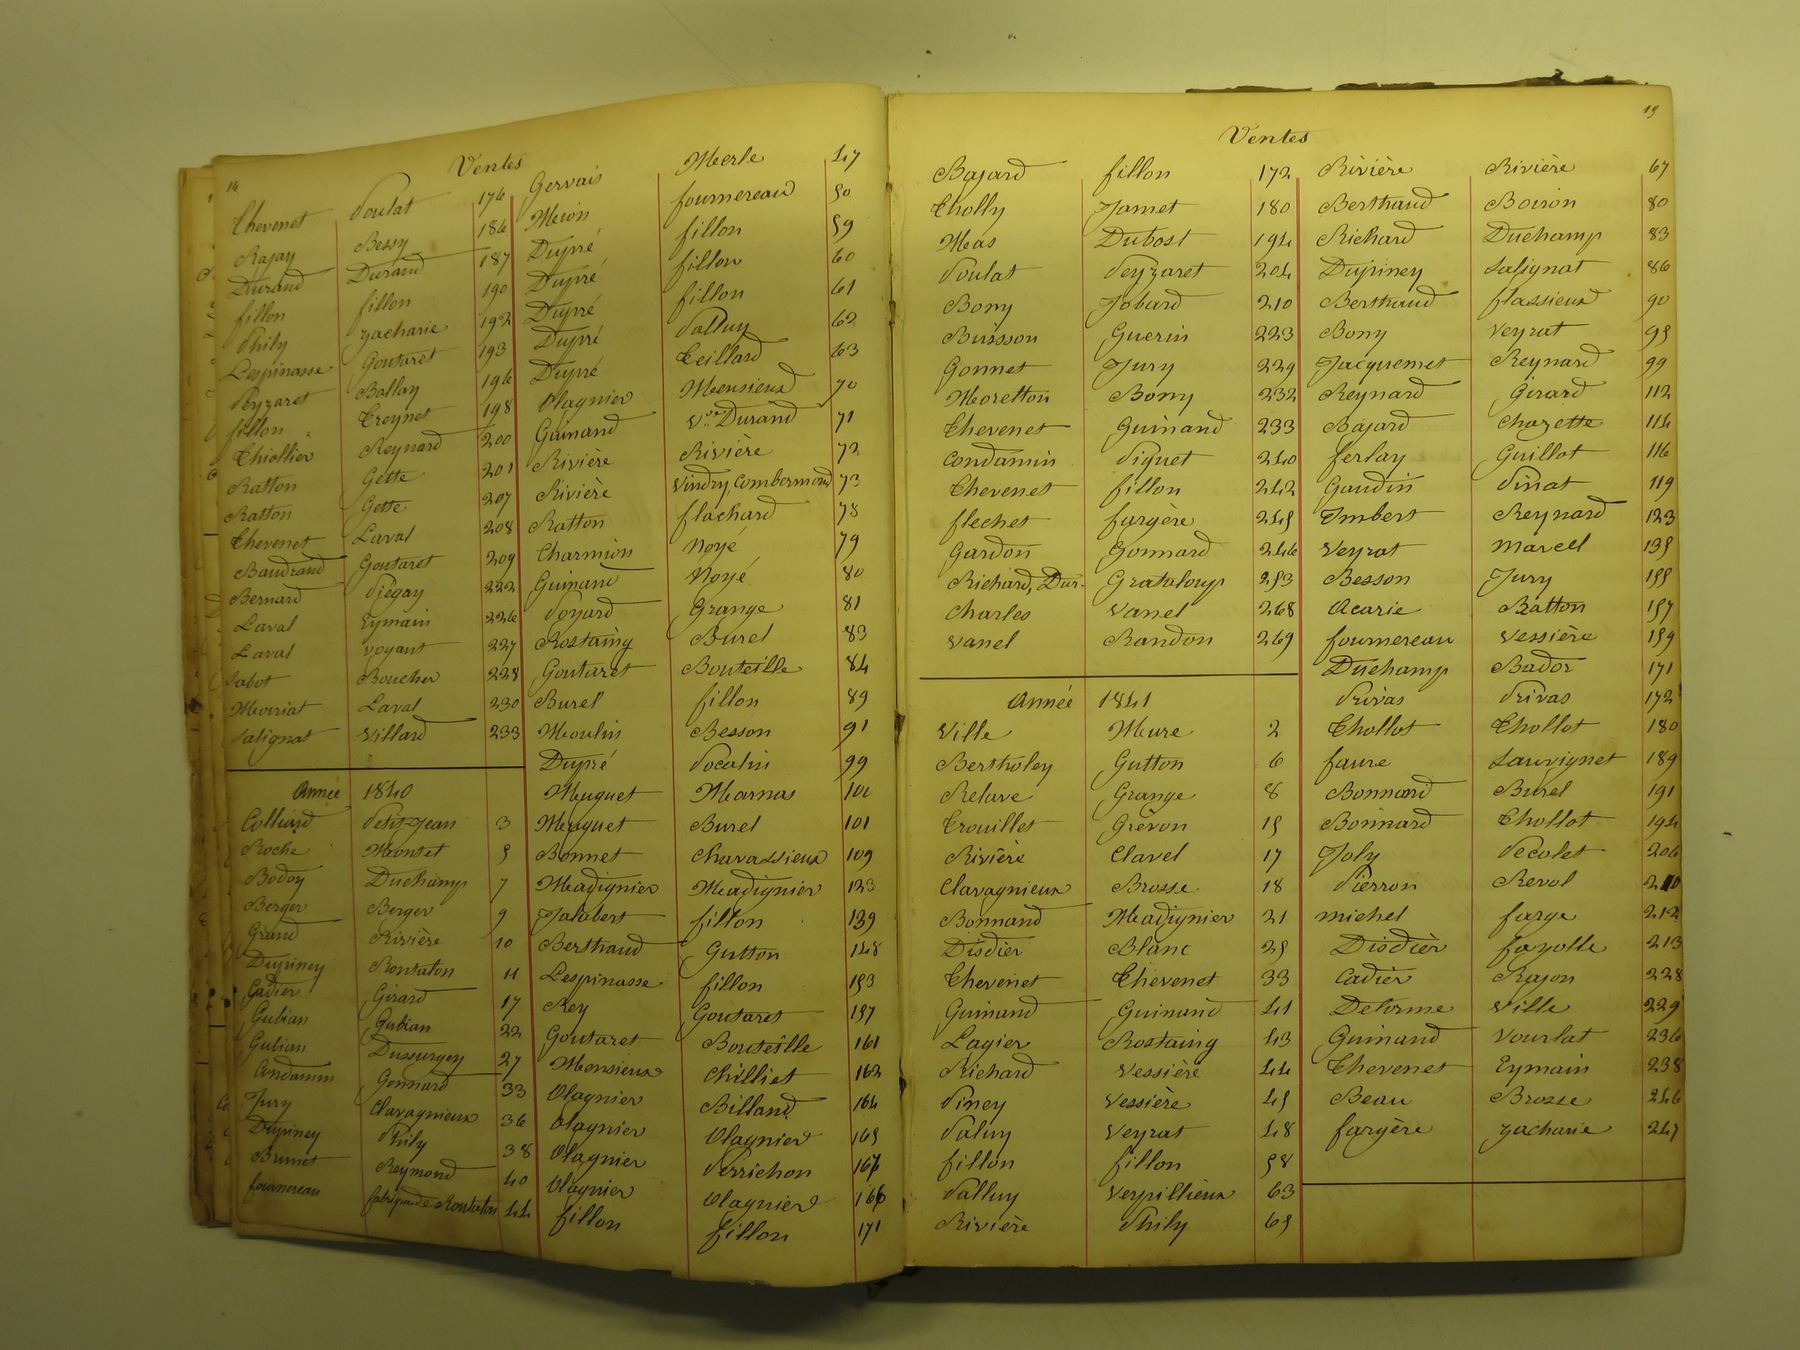 14
Ventes
Chevenet Poulat 176
Rajay Bessy 186
Durand Durand 187
fillon fillon 190
Phily zacharie 192
Lespinasse Goutaret 193
Peyzaret Ballay 196
fillon Creynet 198
Thiollier Reynard 200
Ratton Gette 201
Ratton Gette 207
Chevenet Laval 208
Baudrand Goutaret 209
Bernard Piégay 222
Laval Eymain 226
Laval voyant 227
Sabot Boucher 228
Mouriat Laval 230
Salignat Villard 233
Année 1840
Colliard Petit-Jean 3
Roche Montet 5
Bodoy Duchamp 7
Berger Berger 9
Grand Rivière 10
Dupiney Rontaton 11
Gadier Girard 17
Gubian Gubian 22
Gubian Dussurgey 27
Condamin Gonnard 33
Jury Clavagnieux 36
Dupiney Phily 38
Brunet Reymond 40
fournereau Rontaton 44
Gervais Merle 47
Meion fournereau 50
Dupré fillon 59
Dupré fillon 60
Dupré fillon 61
Dupré Palluy 62
Dupré Teillard 63
Olagnier Monsieux 70
Guinand Vve Durand 71
Rivière Rivière 72
Rivière Vindry, Combermond 73
Ratton flachard 78
Charmion Noyé 79
Guinand Noyé 80
Poyard Grange 81
Rostaing Burel 83
Goutaret Bouteille 84
Burel fillon 89
Moulin Besson 91
Dupré Pocalin 99
Muguet Marnas 100
Muguet Burel 101
Bonnet Chavassieux 109
Madignier Madignier 123
Jalabert fillon 139
Berthaud Gutton 148
Lespinasse fillon 153
Rey Goutaret 157
Goutaret Bouteille 161
Monsieux Chilliet 162
Olagnier Billand 164
Olagnier Olagnier 165
Olagnier Perrichon 166
Olagnier Olagnier 166
fillon fillon 171
15
Ventes
Bajard fillon 172
Cholly Jamet 180
Mas Dubost 194
Poulat Peyzaret 204
Bony Jobard 210
Buisson Guerin 223
Gonnet Jury 229
Moretton Bony 232
Chevenet Guinand 233
Condamin Piquet 240
Chevenet fillon 242
flechet fargère 245
Gardon Gonnard 246
Richard, Dur- Grataloup 253
Charles Vanel 268
Vanel Randon 269
Année 1841
Ville Mure 2
Bertholey Gutton 6
Relave Grange 8
Trouillet Grévon 15
Rivière Clavel 17
Clavagnieux Brosse 18
Bonnand Madignier 21
Disdier Blanc 25
Chevenet Chevenet 33
Guinand Guinand 41
Lagier Rostaing 43
Richard Vessière 44
Piney Vessière 45
Paluy Veyrat 48
fillon fillon 58
Palluy Verpillieux 63
Rivière Phily 65
Rivière Rivière 67
Berthaud Boiron 80
Richard Duchamp 83
Dupiney Salignat 86
Berthaud flassieux 90
Bony Veyrat 95
Jacquemet Reynard 99
Reynard Girard 112
Bajard Chazette 114
ferlay Guillot 116
Gaudin Pinat 119
Imbert Reynard 123
Veyrat Marcel 135
Besson Jury 155
Acarie Ratton 157
fournereau Vessière 159
Duchamp Bador 171
Privas Privas 172
Chollot Chollot 180
faure Sauvignet 189
Bonnard Burel 191
Bonnard Chollot 194
Joly Pecolet 206
Pierron Revol 210
michel farge 212
Disdier fayolle 213
Cadier Rajon 228
Delorme Ville 229
Guinand Vourlat 236
Chevenet Eymain 238
Beau Brosse 246
fargère zacharie 247